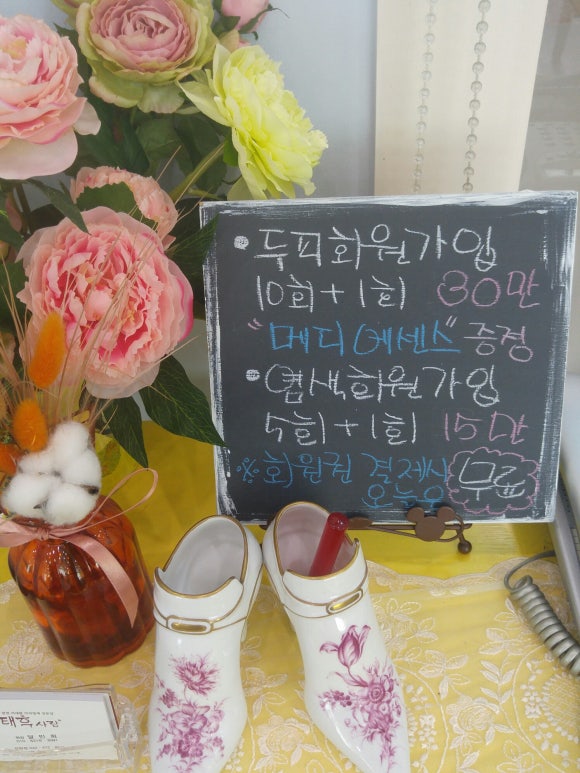 • 두피회원가입
10회 + 1회 30만
"메디에센스" 증정
• 염색회원가입
5회 + 1회 15만
※회원권 결제시 무료
오늘은
태흑사진